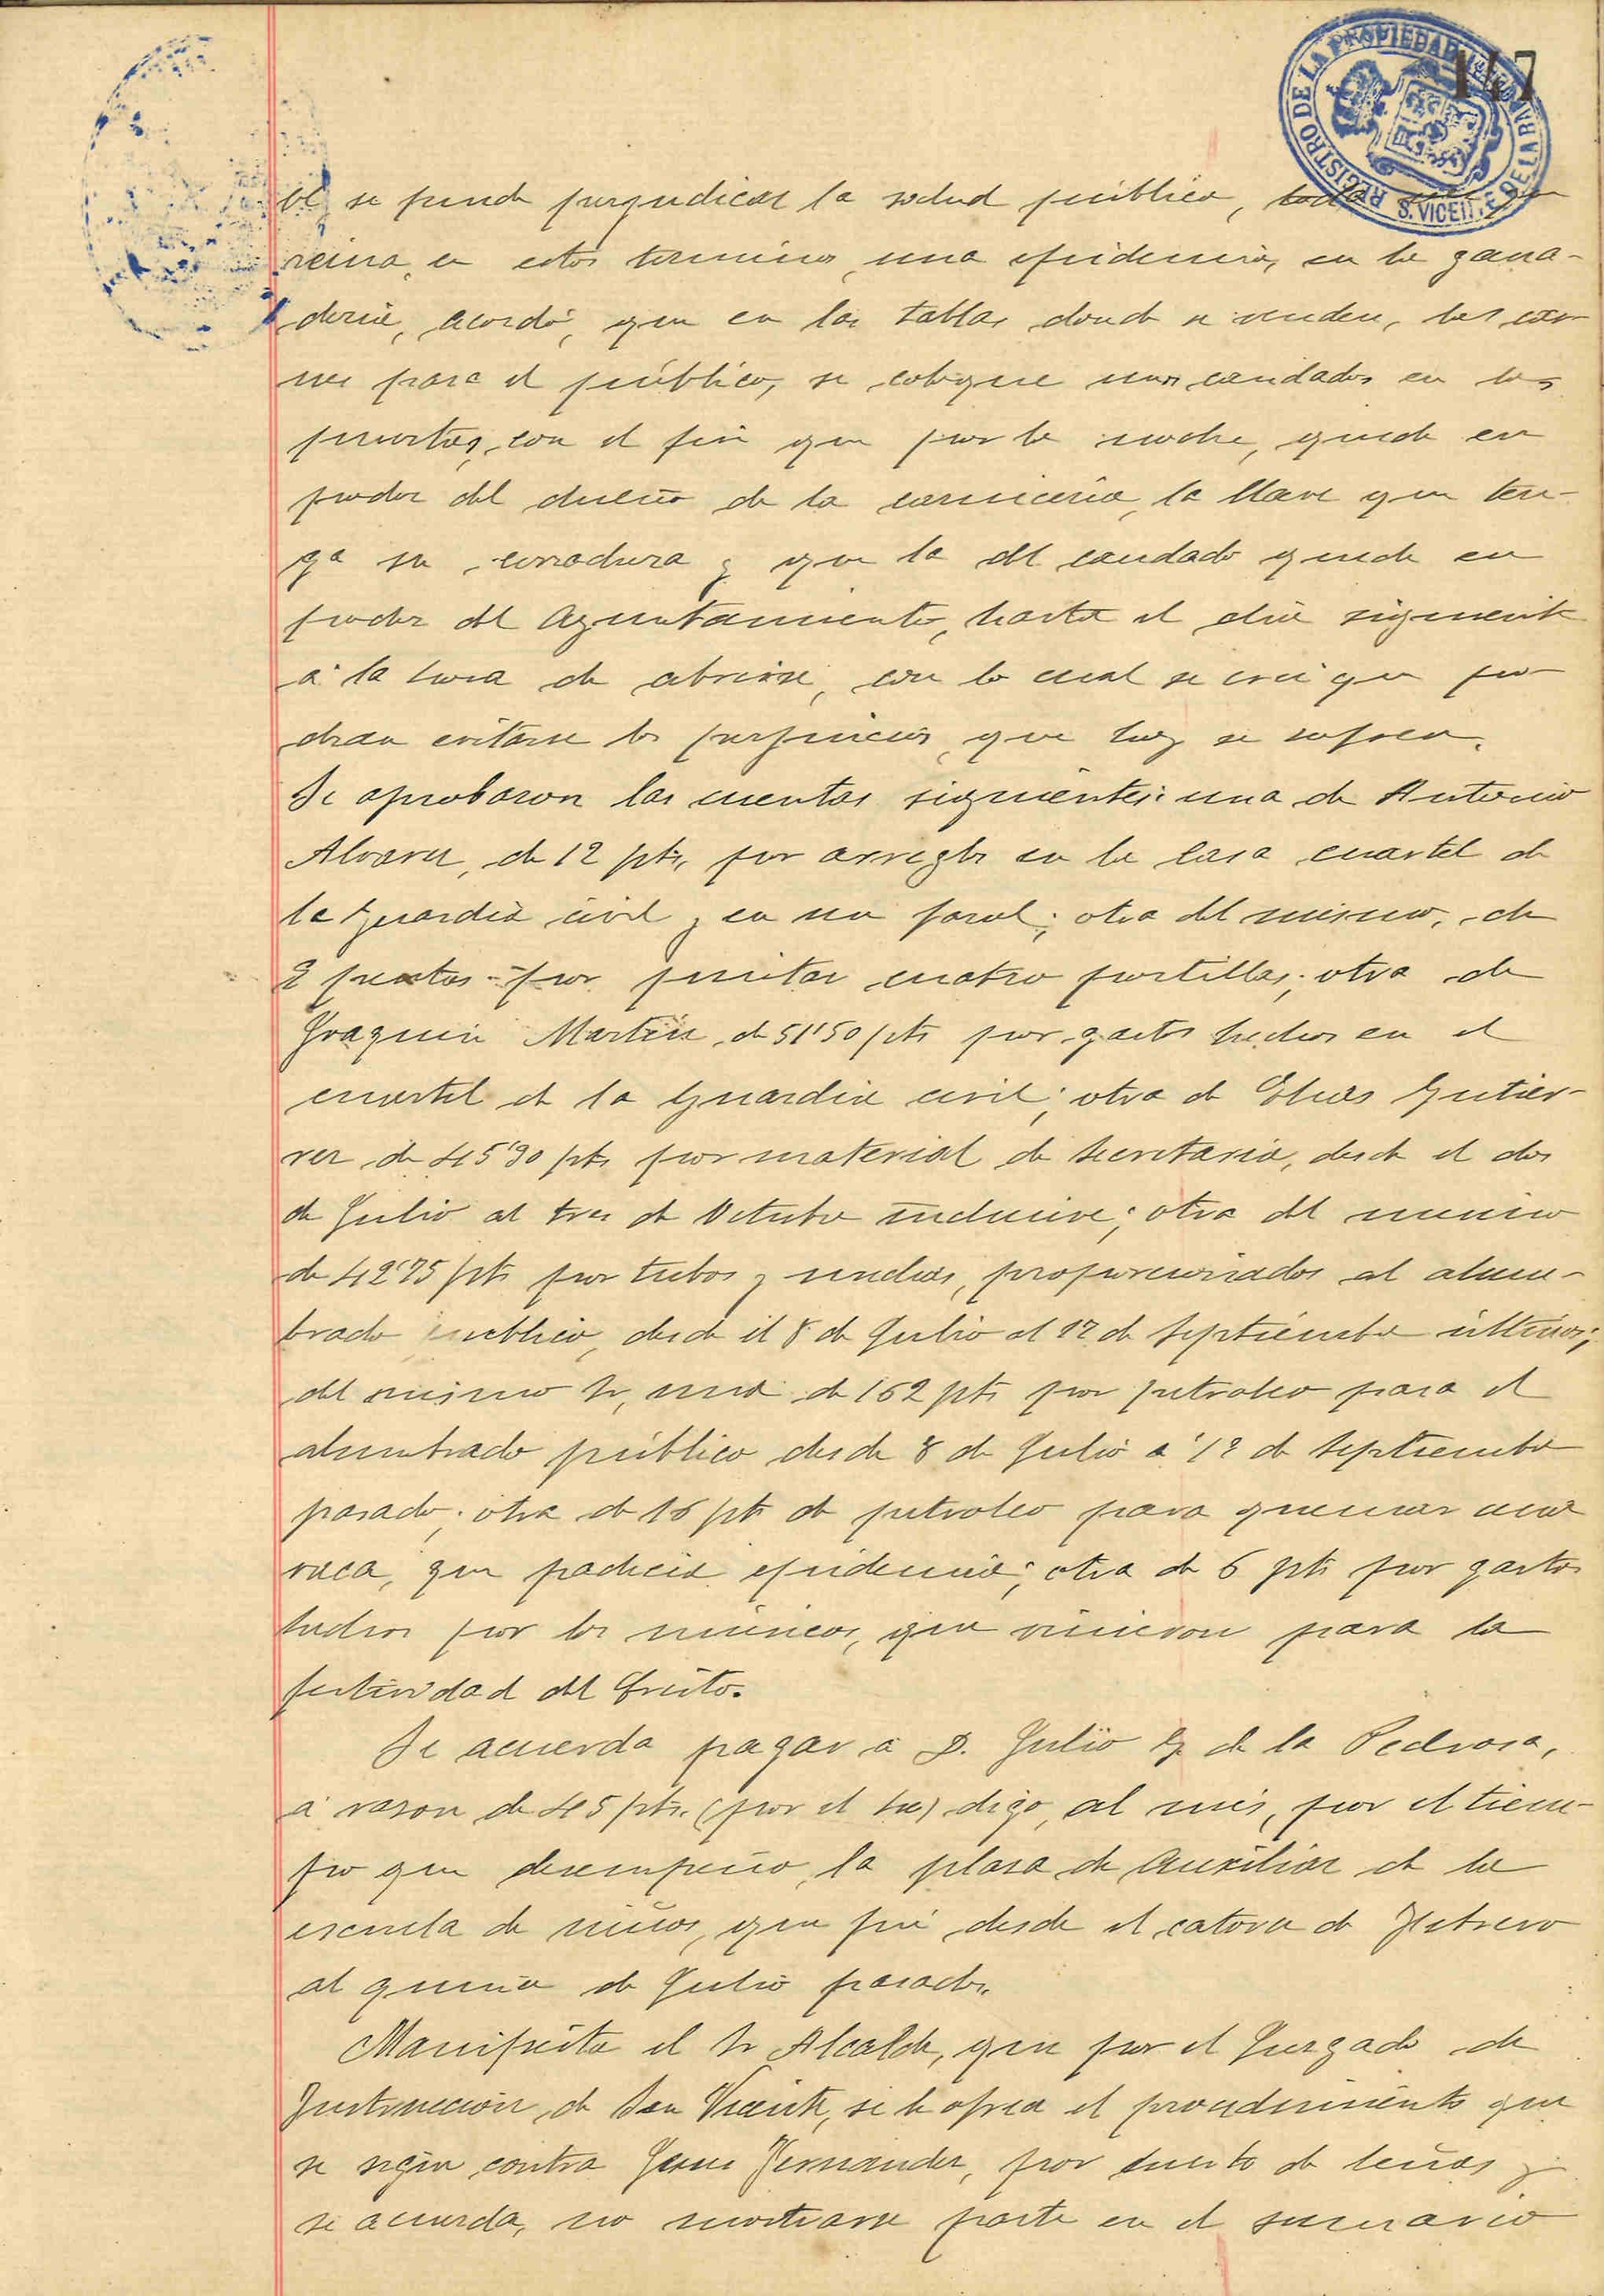 147
REGISTRO DE LA PROPIEDAD
S. VICENTE DE LA BAR
se puede perjudicar la salud pública, toda vez que
reina en estos terminos una epidemia, en la gana-
deria, acordó, que en las tablas donde se venden, las car-
nes para el público, se coloque unos candados en las
puertas, con el fin que por la noche, quede en
poder del dueño de la carniceria, la llave que ten-
ga su cerradura y que la del candado quede en
poder del Ayuntamiento, hasta el dia siguiente
á la hora de abrirse, con lo cual se cree que po-
dran evitarse los perjuicios, que hoy se sufren.
Se aprobaron las cuentas siguientes: una de Antonio
Alvarez, de 12 pts, por arreglos en la casa cuartel de
la Guardia civil y en un farol; otra del mismo, de
2 pesetas por pintar cuatro portillas; otra de
Joaquin Martin, de 51'50 pts por gastos hechos en el
cuartel de la Guardia civil; otra de Gutier-
rez de 45'90 pts por material de Secretaria, desde el dos
de Julio al tres de Octubre inclusive; otra del mismo
de 42'75 pts por tubos y mechas, proporcionados al alum-
brado público, desde el 8 de Julio al 12 de Septiembre último;
del mismo Sr, una de 162 pts por petroleo para el
alumbrado público desde 8 de Julio á 12 de Septiembre
pasado; otra de 16 pts de petroleo para quemar una
vaca, que padecia epidemia; otra de 6 pts por gastos
hechos por los músicos, que vinieron para la
festividad del Cristo.
Se acuerda pagar á D. Julio G. de la Pedrosa,
á razon de 45 pts. (por el tre) digo, al mes, por el tiem-
po que desempeño, la plaza de Auxiliar de la
escuela de niños, que fué desde el catorce de Febrero
al quince de Julio pasado.
Manifiesta el Sr Alcalde, que por el Juzgado de
Instruccion de San Vicente, se le ofrece el procedimiento que
se sigue contra Fernandez, por hurto de leñas y
se acuerda, no mostrarse parte en el sumario